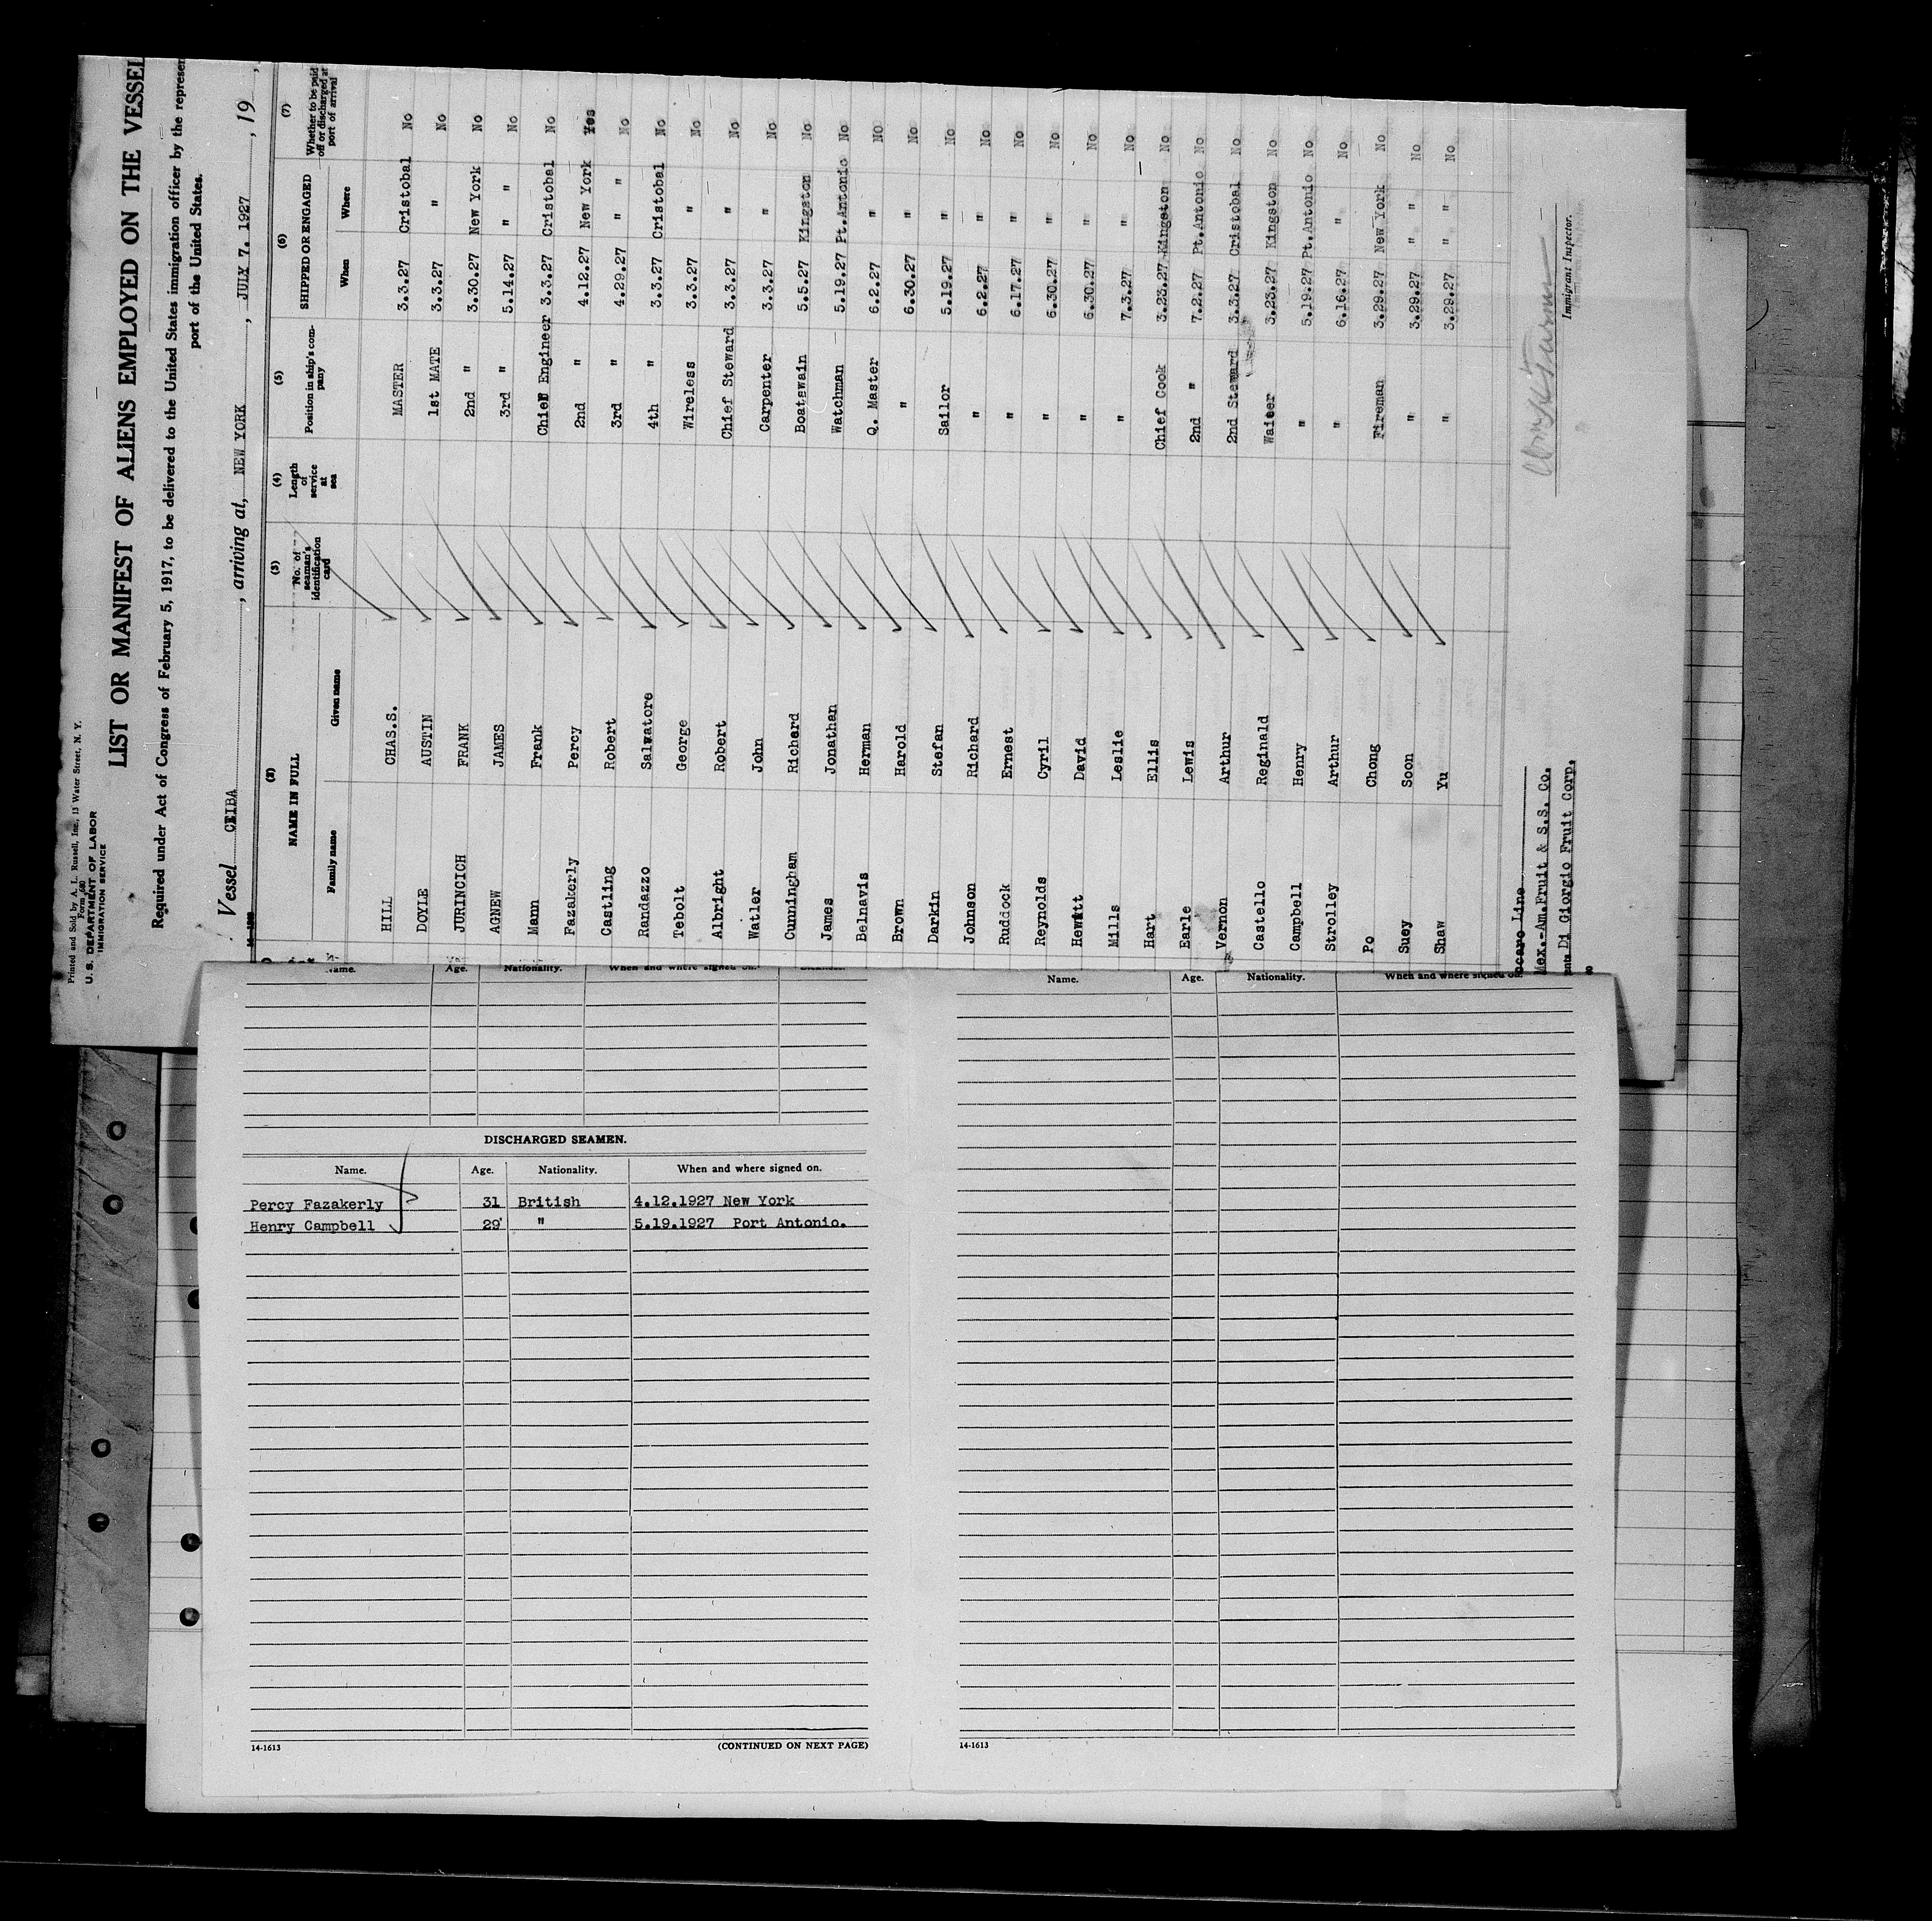 Printed and Sold by A. L. Russell, Inc., 13 Water Street, N. Y.
Form 680
U. S. DEPARTMENT OF LABOR
IMMIGRATION SERVICE
LIST OR MANIFEST OF ALIENS EMPLOYED ON THE VESSEL
Required under Act of Congress of February 5, 1917, to be delivered to the United States immigration officer by the represen
port of the United States.
Vessel CEIBA , arriving at, NEW YORK , JULY 7. 1927 , 19 ,
(2) (3) (4) (5) (6) (7)
NAME IN FULL No. of seaman's identification card Length of service at sea Position in ship's company SHIPPED OR ENGAGED Whether to be paid off or discharged at port of arrival
Family name Given name When Where
HILL CHAS.S. MASTER 3.3.27 Cristobal No
DOYLE AUSTIN 1st MATE 3.3.27 " No
JURINCICH FRANK 2nd " 3.30.27 New York No
AGNEW JAMES 3rd " 5.14.27 " " No
Mann Frank Chief Engineer 3.3.27 Cristobal No
Fazakerly Percy 2nd " 4.12.27 New York Yes
Castling Robert 3rd " 4.29.27 " " No
Randazzo Salvatore 4th " 3.3.27 Cristobal No
Tebolt George Wireless 3.3.27 " No
Albright Robert Chief Steward 3.3.27 " No
Watler John Carpenter 3.3.27 " No
Cunningham Richard Boatswain 5.5.27 Kingston No
James Jonathan Watchman 5.19.27 Pt.Antonio No
Belnavis Herman Q. Master 6.2.27 " NO
Brown Harold " 6.30.27 " No
Darkin Stefan Sailor 5.19.27 " No
Johnson Richard " 6.2.27 " No
Ruddock Ernest " 6.17.27 " No
Reynolds Cyril " 6.30.27 " No
Hewitt David " 6.30.27 " No
Mills Leslie " 7.3.27 " No
Hart Ellis Chief Cook 3.23.27 Kingston No
Earle Lewis 2nd " 7.2.27 Pt.Antonio No
Vernon Arthur 2nd Steward 3.3.27 Cristobal No
Castello Reginald Waiter 3.23.27 Kingston No
Campbell Henry " 5.19.27 Pt.Antonio No
Strolley Arthur " 6.16.27 " No
Po Chong Fireman 3.29.27 New York No
Suey Soon " 3.29.27 " " No
Shaw Yu " 3.29.27 " " No
Line
Mex.-Am.Fruit & S.S. Co.
Di Giorgio Fruit Corp.
Immigrant Inspector.
Name. Age. Nationality. When and where signed on.
DISCHARGED SEAMEN.
Name. Age. Nationality. When and where signed on.
Percy Fazakerly 31 British 4.12.1927 New York
Henry Campbell 29 " 5.19.1927 Port Antonio.
14-1613 (CONTINUED ON NEXT PAGE)
Name. Age. Nationality. When and where signed on
14-1613